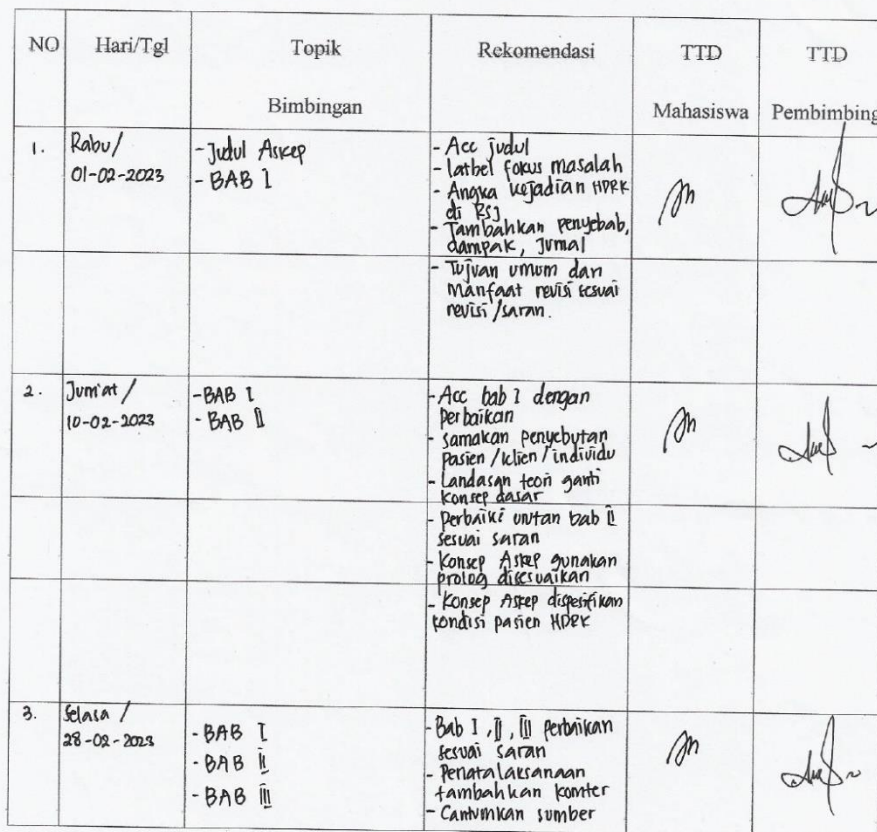 NO Hari/Tgl Topik Bimbingan Rekomendasi TTD Mahasiswa TTD Pembimbing
1. Rabu/ 01-02-2023
- Judul Askep
- BAB I
- Acc judul
- latbel fokus masalah
- Angka kejadian HDRK
di RSJ
- Tambahkan penyebab,
dampak, Jurnal
- Tujuan umum dan
Manfaat revisi sesuai
revisi/saran.
2. Jum'at / 10-02-2023
- BAB I
- BAB II
- Acc bab 1 dengan
perbaikan
- samakan penyebutan
pasien/klien/individu
- Landasan teori ganti
konsep dasar
- perbaiki urutan bab II
sesuai saran
- Konsep Askep gunakan
prolog disesuaikan
- Konsep Askep dispesifikan
kondisi pasien HDRK
3. Selasa / 28-02-2023
- BAB I
- BAB II
- BAB III
- Bab I, II, III perbaikan
sesuai saran
- Penatalaksanaan
tambahkan komter
- Cantumkan sumber